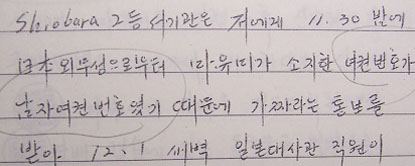 Shiobara 2등 서기관은 저에게 11.30 밤에
외무성으로부터 마유미가 소지한 여권번호가
남자여권 번호였기 때문에 가짜라는 통보를
받아. 12.1 새벽 일본대사관 직원이